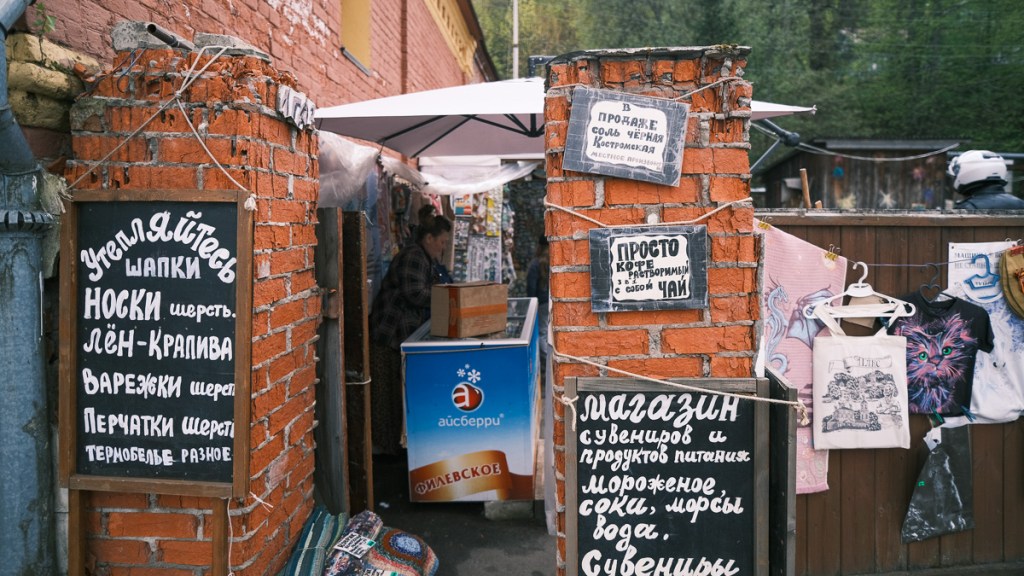 Утепляйтесь
шапки
Носки шерсть.
Лён-Крапива
Варежки шерсть
Перчатки шерсть
Термобелье разное
В
продаже
соль чёрная
Костромская
местное производство
Просто
кофе
растворимый
3 в 1
с собой чай
айсберри®
Филевское
Магазин
сувениров и
продуктов питания
мороженое,
соки, морсы
вода.
Сувениры